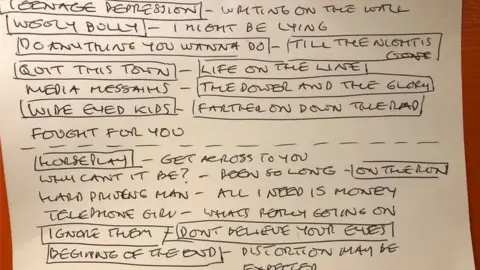 TEENAGE DEPRESSION - WRITING ON THE WALL
WOOLY BULLY - I MIGHT BE LYING
DO ANYTHING YOU WANNA DO - TILL THE NIGHT IS GONE
QUIT THIS TOWN - LIFE ON THE LINE
MEDIA MESSAIHS - THE POWER AND THE GLORY
WIDE EYED KIDS - FARTHER ON DOWN THE ROAD
FOUGHT FOR YOU
HORSEPLAY - GET ACROSS TO YOU
WHY CANT IT BE? - BEEN SO LONG - ON THE RUN
HARD DRIVING MAN - ALL I NEED IS MONEY
TELEPHONE GIRL - WHATS REALLY GOING ON
IGNORE THEM - DONT BELIEVE YOUR EYES
BEGINNING OF THE END - DISTORTION MAY BE
EXPECTED